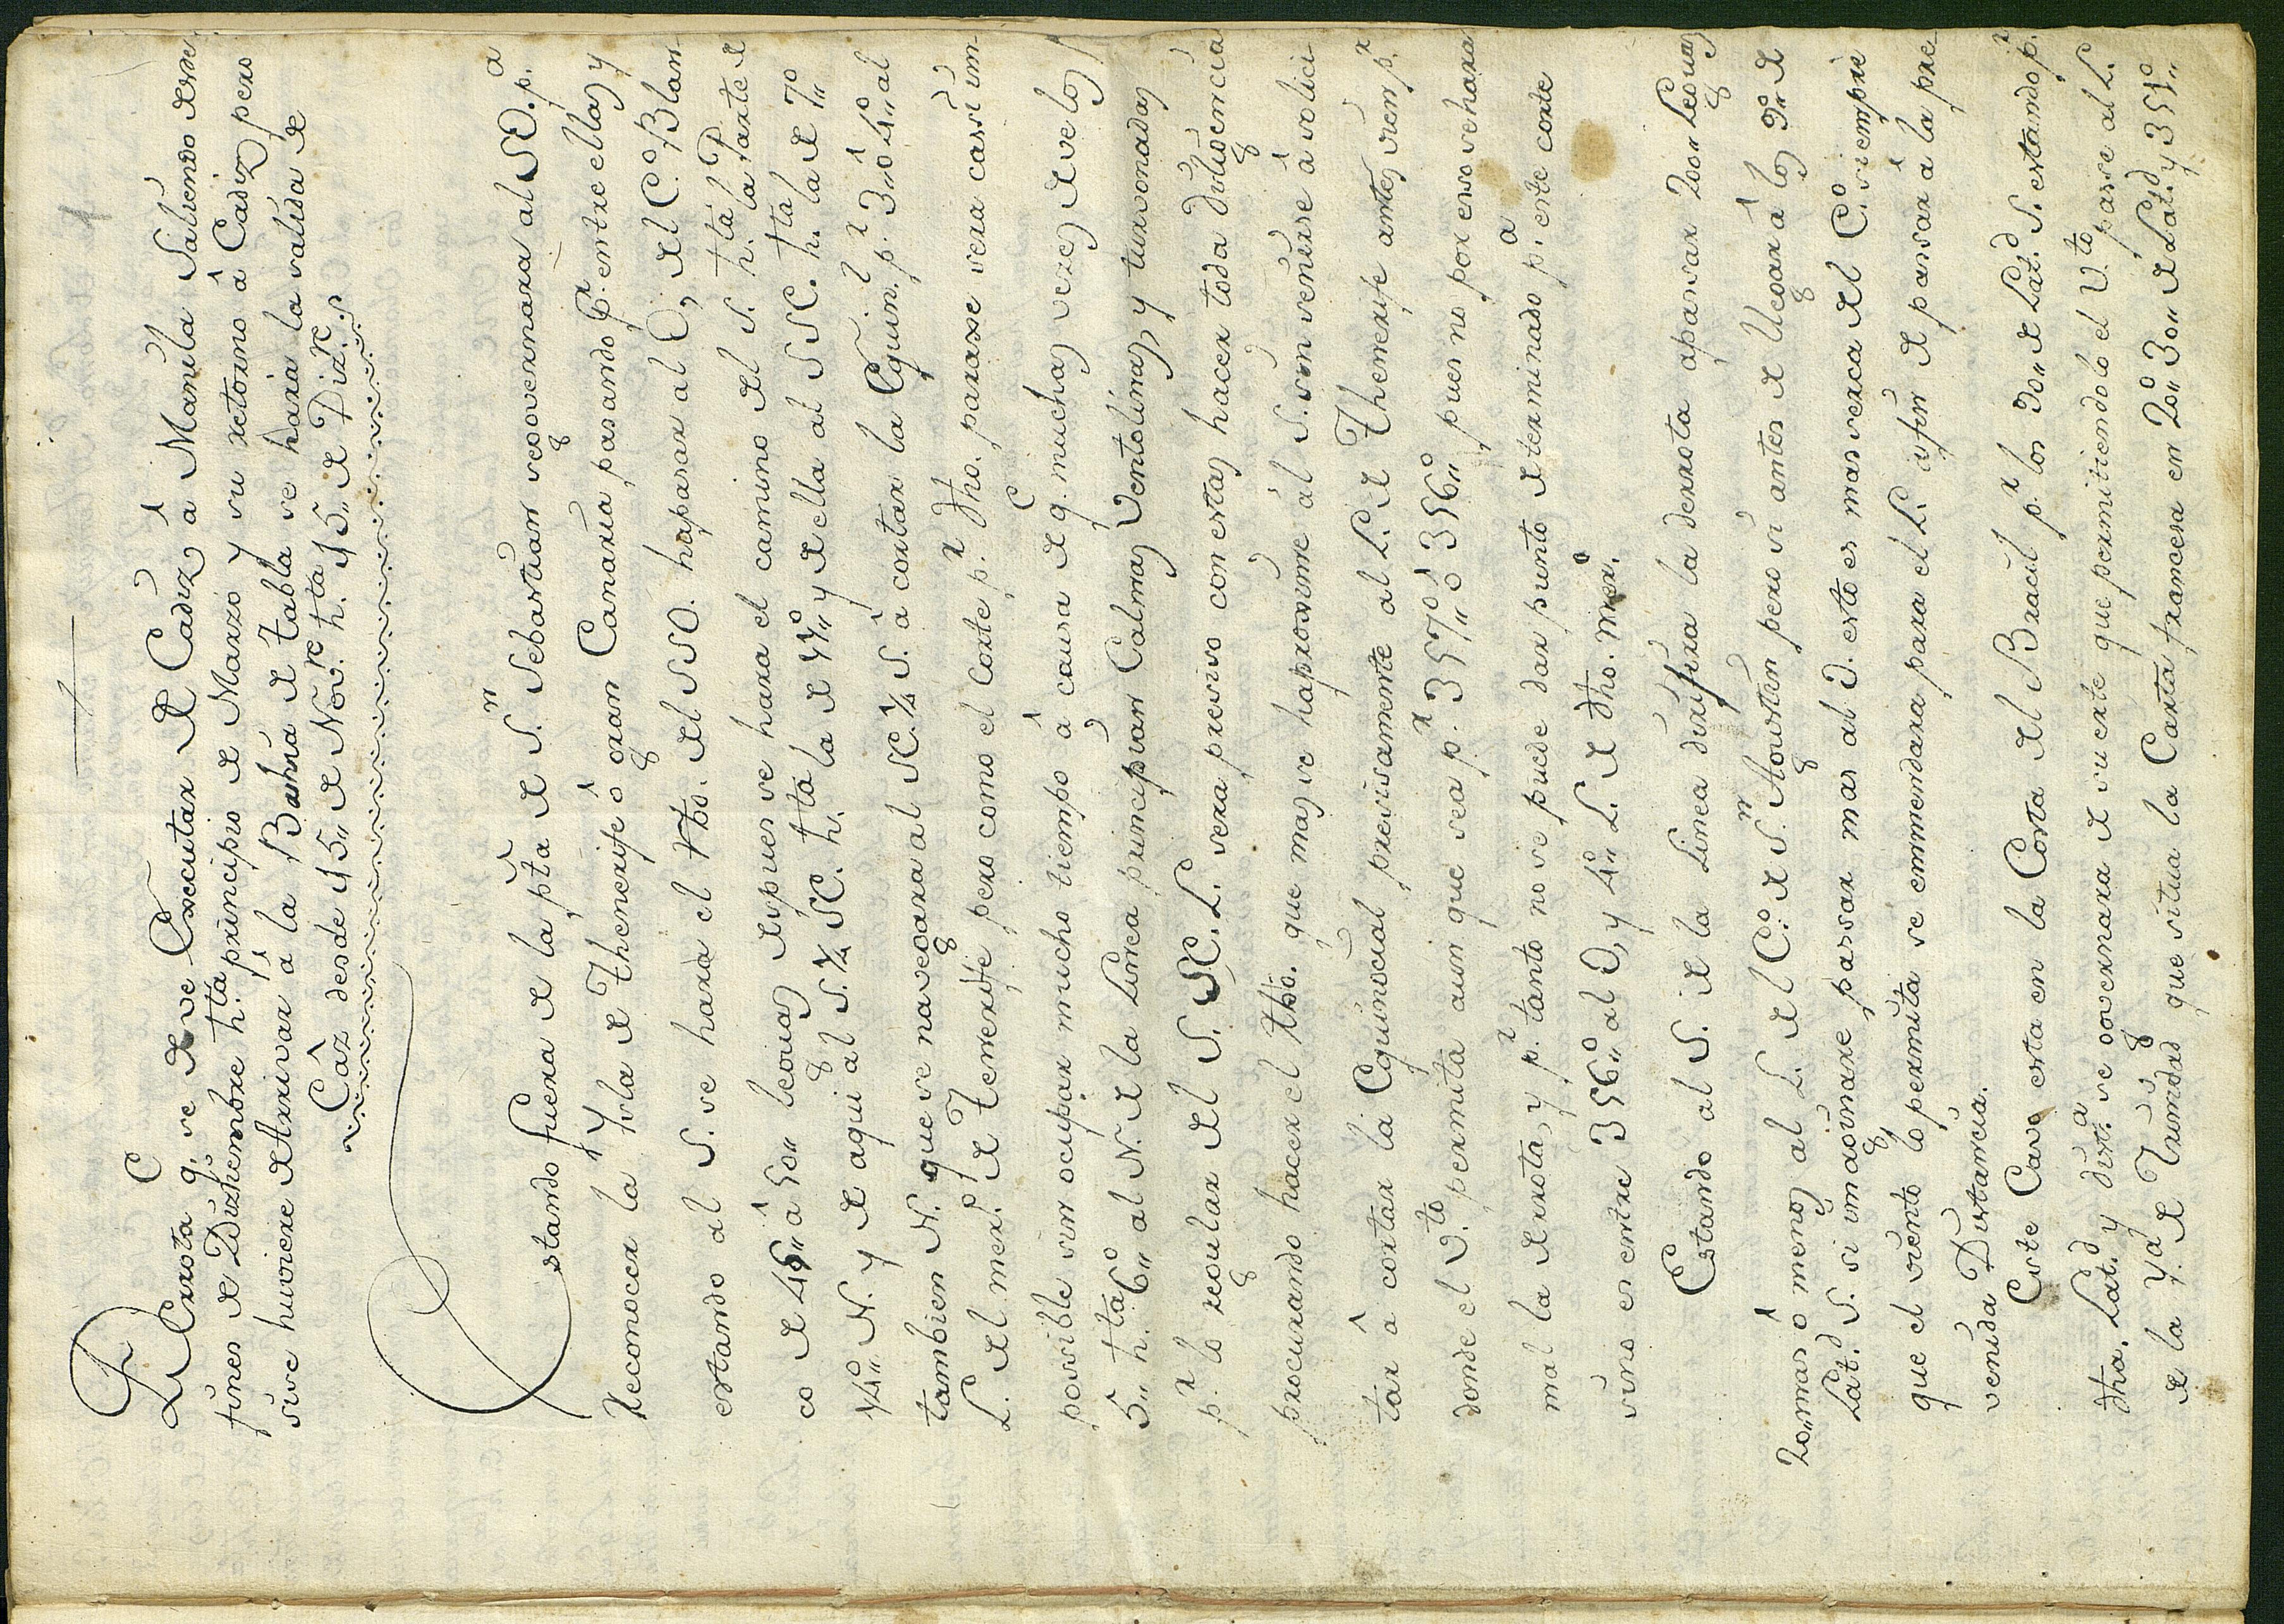 1
DErrota q.e se de ve Executar de Cadiz â Manila Saliendo desde
fines de Diziembre h.ta principio de Marzo y su retorno â Cadiz pero
si se huviere de Arrivar â la Bahia de Tabla se haria la salida de
Câz desde 15,, de Nov.re h.ta 15,, de Diz.re
Estando fuera de la pta de S.n Sebastian segovernara al SO. p.a
Reconocer la Ysla de Thenerife ô gran Canaria pasando P.r entre ellas y
estando al S. se hara el rho. del SSO. ha pasar al O, del C.o Blan
co de 45,, â 50,, leguas despues se hara el camino del S. h.ta la Parte de
14.o,, N. y de aqui al S.¼ SE. h.ta la de 11.o,, y de ella al SSE. h.ta la de 7.o
tambien N. que se navegara al SE.¼ S. â cortar la Equin.l p.r 3,, ô 4.o,, al
L. del mer.o de Tenerife pero como el Corte p.r dho. parase sera cassi im
possible sin ocupar mucho tiempo â causa de q.e muchas vezes desde los
5,, h.ta 6.o,, al N. de la Linea principian Calmas Ventolinas, y turvonadas
p.r lo regular del S. SE. L. sera presiso con estas hacer toda diligencia
procurando hacer el rho. que mas se haproxime âl S. sin venirse â solici
tar â cortar la Equinocial presisamente al L. de Thenerife antes vien p.r
donde el V.to permita aun que sea p.r 357.o,, ô 356.o,, pues no por esso se hara
mal la derrota, y p.r tanto no se puede dar punto determinado p.a este corte
sino es entre 356.o,, al O, y 4.o,, L. de dho. mer.o
Estando al S. de la Linea dirifira la derrota apassar 200,, Leguas
20,, mas ô menos al L. del C.o de S.n Agustin pero si antes de llegar â los 9.o,, de
Lat.d S. si imaginare passar mas al O. esto es mas serca del C.o siempre
que el viento lo permita se emmendara para el L. afin de passar â la pre
venida Distancia.
Este Cavo esta en la Costa del Bracil p.r los 30,, de Lat.d S. estando p.r
dha. Lat.d y dist.a se governara de su erte que permitiendolo el V.to passe al L.
de la Y.a de Trinidad que situa la Carta francesa en 20.o,, 30,, de Lat.d y 351.o,,